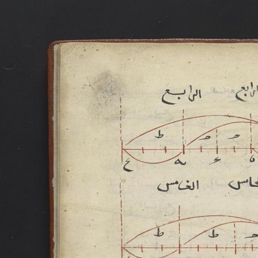 الرابع الرابع
ط ح ح
ع ه ع ه
الخامس الخامس
ط ط ح